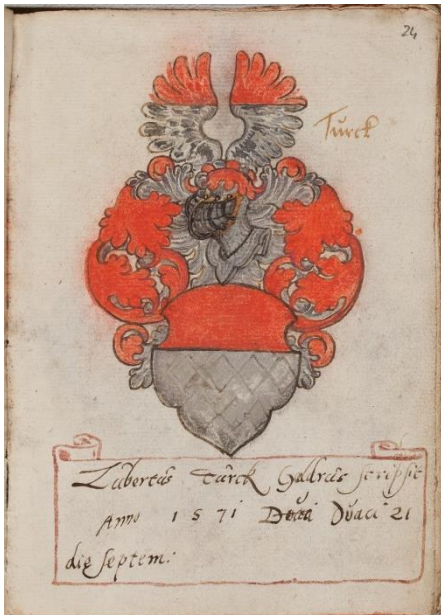 24
Turck
Lubertus Turck Geldrus scripsit
Anno 1571 Duaci 21
die Septem: